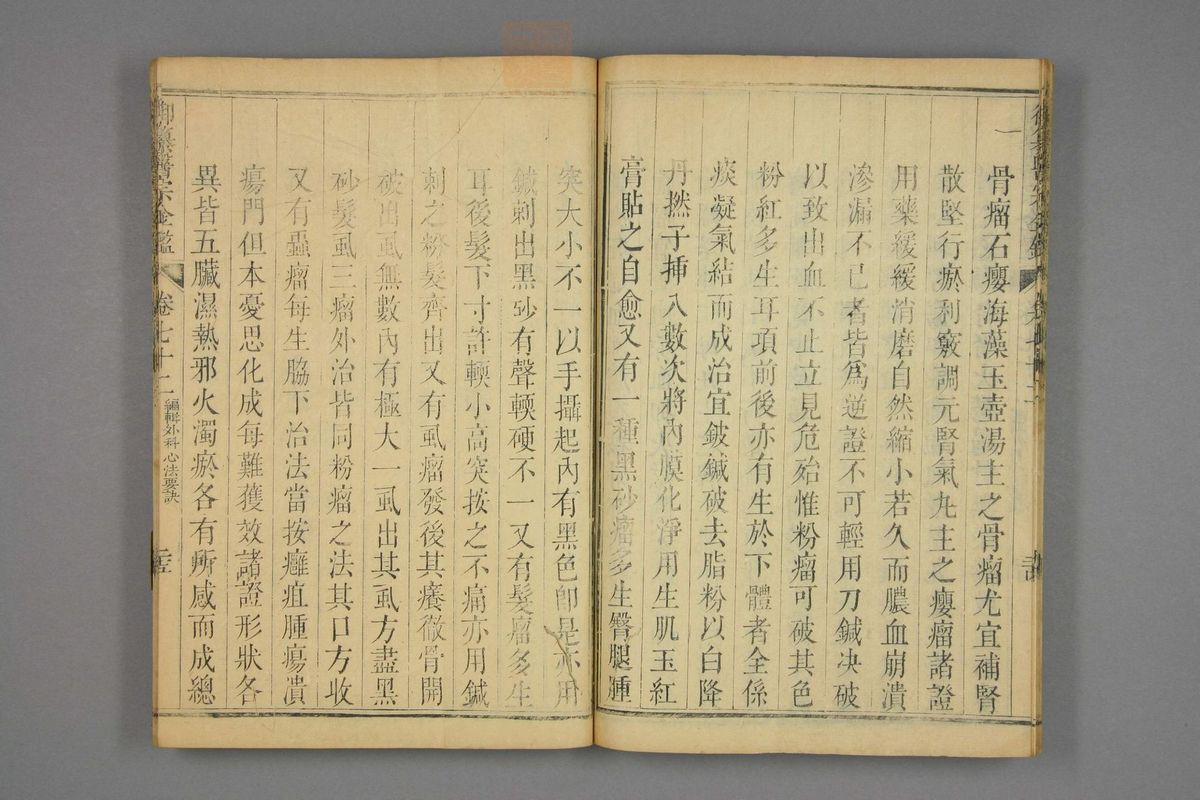 骨瘤石癭海藻玉壺湯主之骨瘤尤宜補腎
散堅行瘀利竅調元腎氣丸主之癭瘤諸證
用藥緩緩消磨自然縮小若久而膿血崩潰
滲漏不已者皆爲逆證不可輕用刀鍼决破
以致出血不止立見危殆惟粉瘤可破其色
粉紅多生耳項前後亦有生於下體者全係
痰凝氣結而成治宜鈹鍼破去脂粉以白降
丹撚子挿入數次將內膜化淨用生肌玉紅
膏貼之自愈又有一種黑砂瘤多生臀腿腫
突大小不一以手攝起內有黑色卽是亦用
鍼刺出黑砂有聲輭硬不一又有髮瘤多生
耳後髮下寸許輭小高突按之不痛亦用鍼
刺之粉髮齊出又有虱瘤發後其癢徹骨開
破出虱無數內有極大一虱出其虱方盡黑
砂髮虱三瘤外治皆同粉瘤之法其口方收
又有蟲瘤每生脇下治法當按癰疽腫瘍潰
瘍門但本憂思化成每難獲效諸證形狀各
異皆五臟濕熱邪火濁瘀各有所感而成總
御纂醫宗金鑑
卷七十二
編輯外科心法要訣